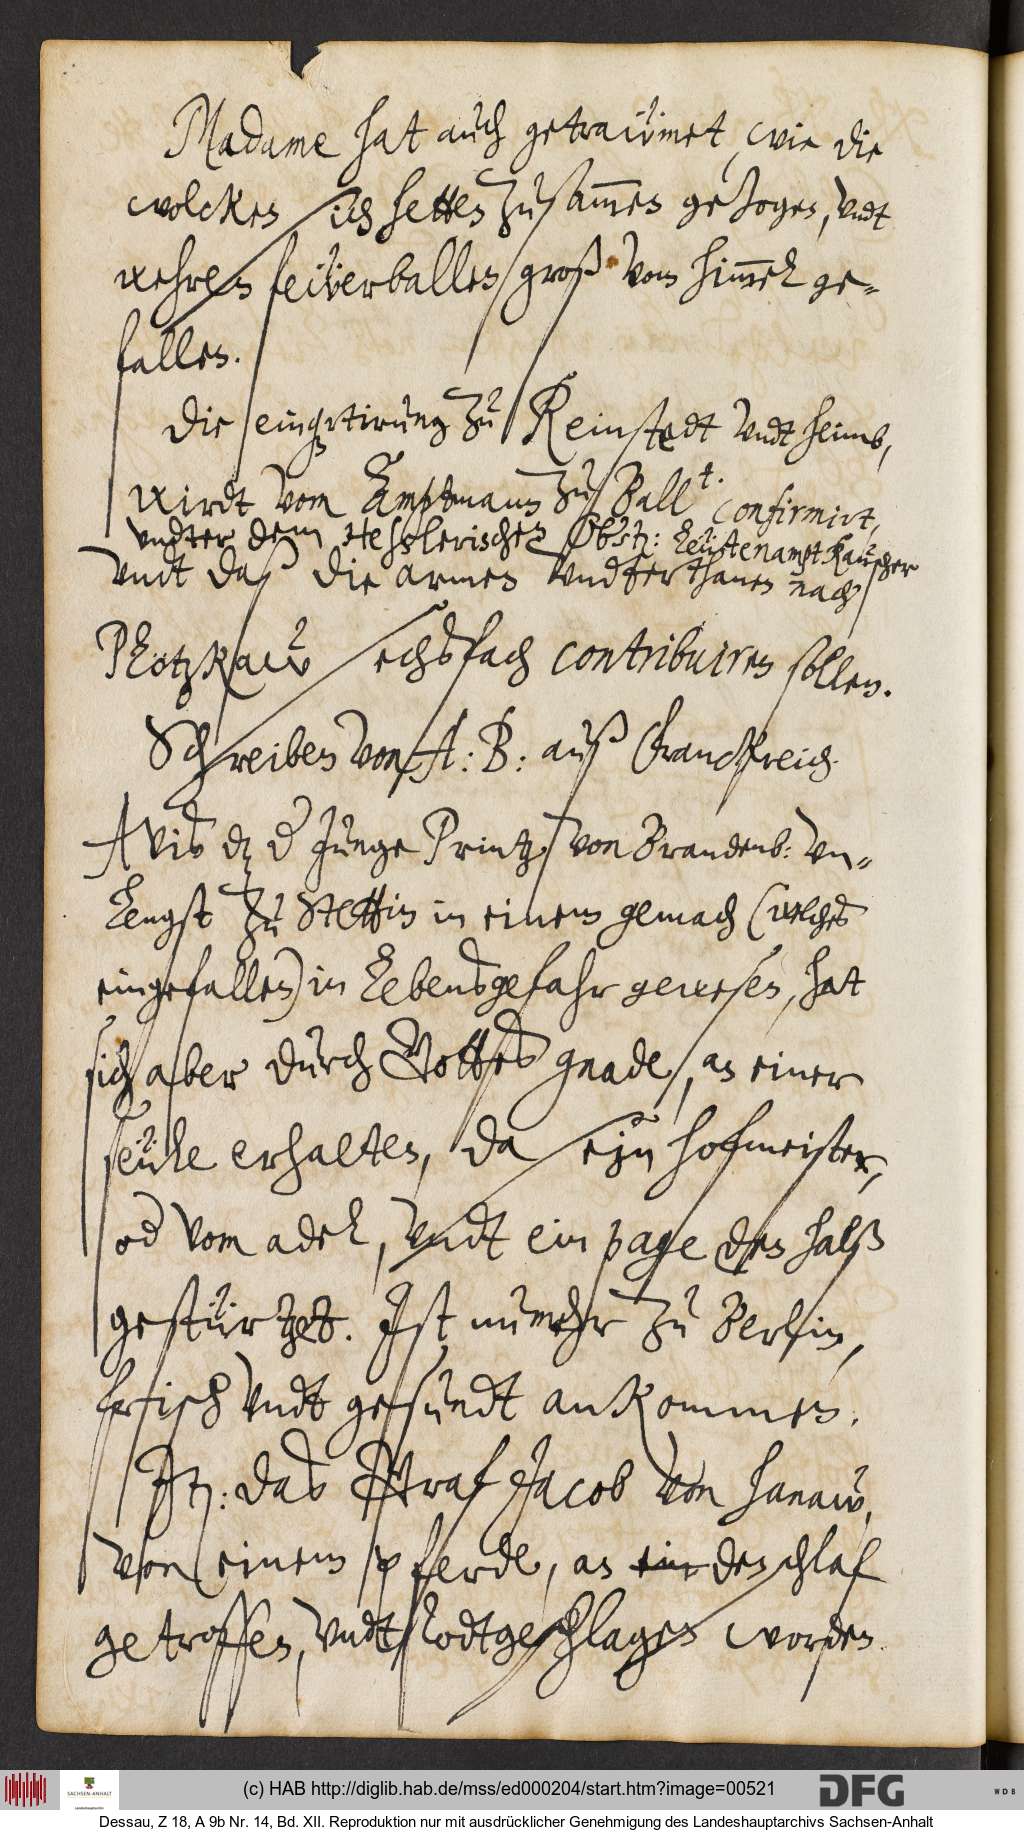 Madame hat auch getraüwmet, wie die
wolcken sich hetten zusammen gezogen, undt
wehren feüwerballen groß vom himmel ge-
fallen.
Die einqrtirung zu Reinstedt undt heimb,
wirdt vom Amptmann zu Ball&lt;sup&gt;t&lt;/sup&gt;. confirmirt,
undter dem Heßlerischen Obrl: Leütenampt Rauscher
undt daß die armen undterthanen nach
Plötzkaw sechsfach contribuiren sollen.
Schreiben von A: B: auß Franckreich.
Avis dz der Junge Printz von Brandenb: un-
lengst zu Stettin in einem gemach (welches
eingefallen) in lebensgefahr gewesen, hat
sich aber durch Gottes gnade, an einer
seüle erhalten, da sein hofmeister,
od vom adel, undt ein page den halß
gestürtzet. Ist numehr zu Berlin,
frisch undt gesundt ankommen.
It: das Graf Jacob von hanaw,
von einem pferde, an ein den schlaf
getroffen, undt todtgeschlagen worden.
(c) HAB http://diglib.hab.de/mss/ed000204/start.htm?image=00521
SACHSEN-ANHALT
Landeshauptarchiv
DFG
WDB
Dessau, Z 18, A 9b Nr. 14, Bd. XII. Reproduktion nur mit ausdrücklicher Genehmigung des Landeshauptarchivs Sachsen-Anhalt